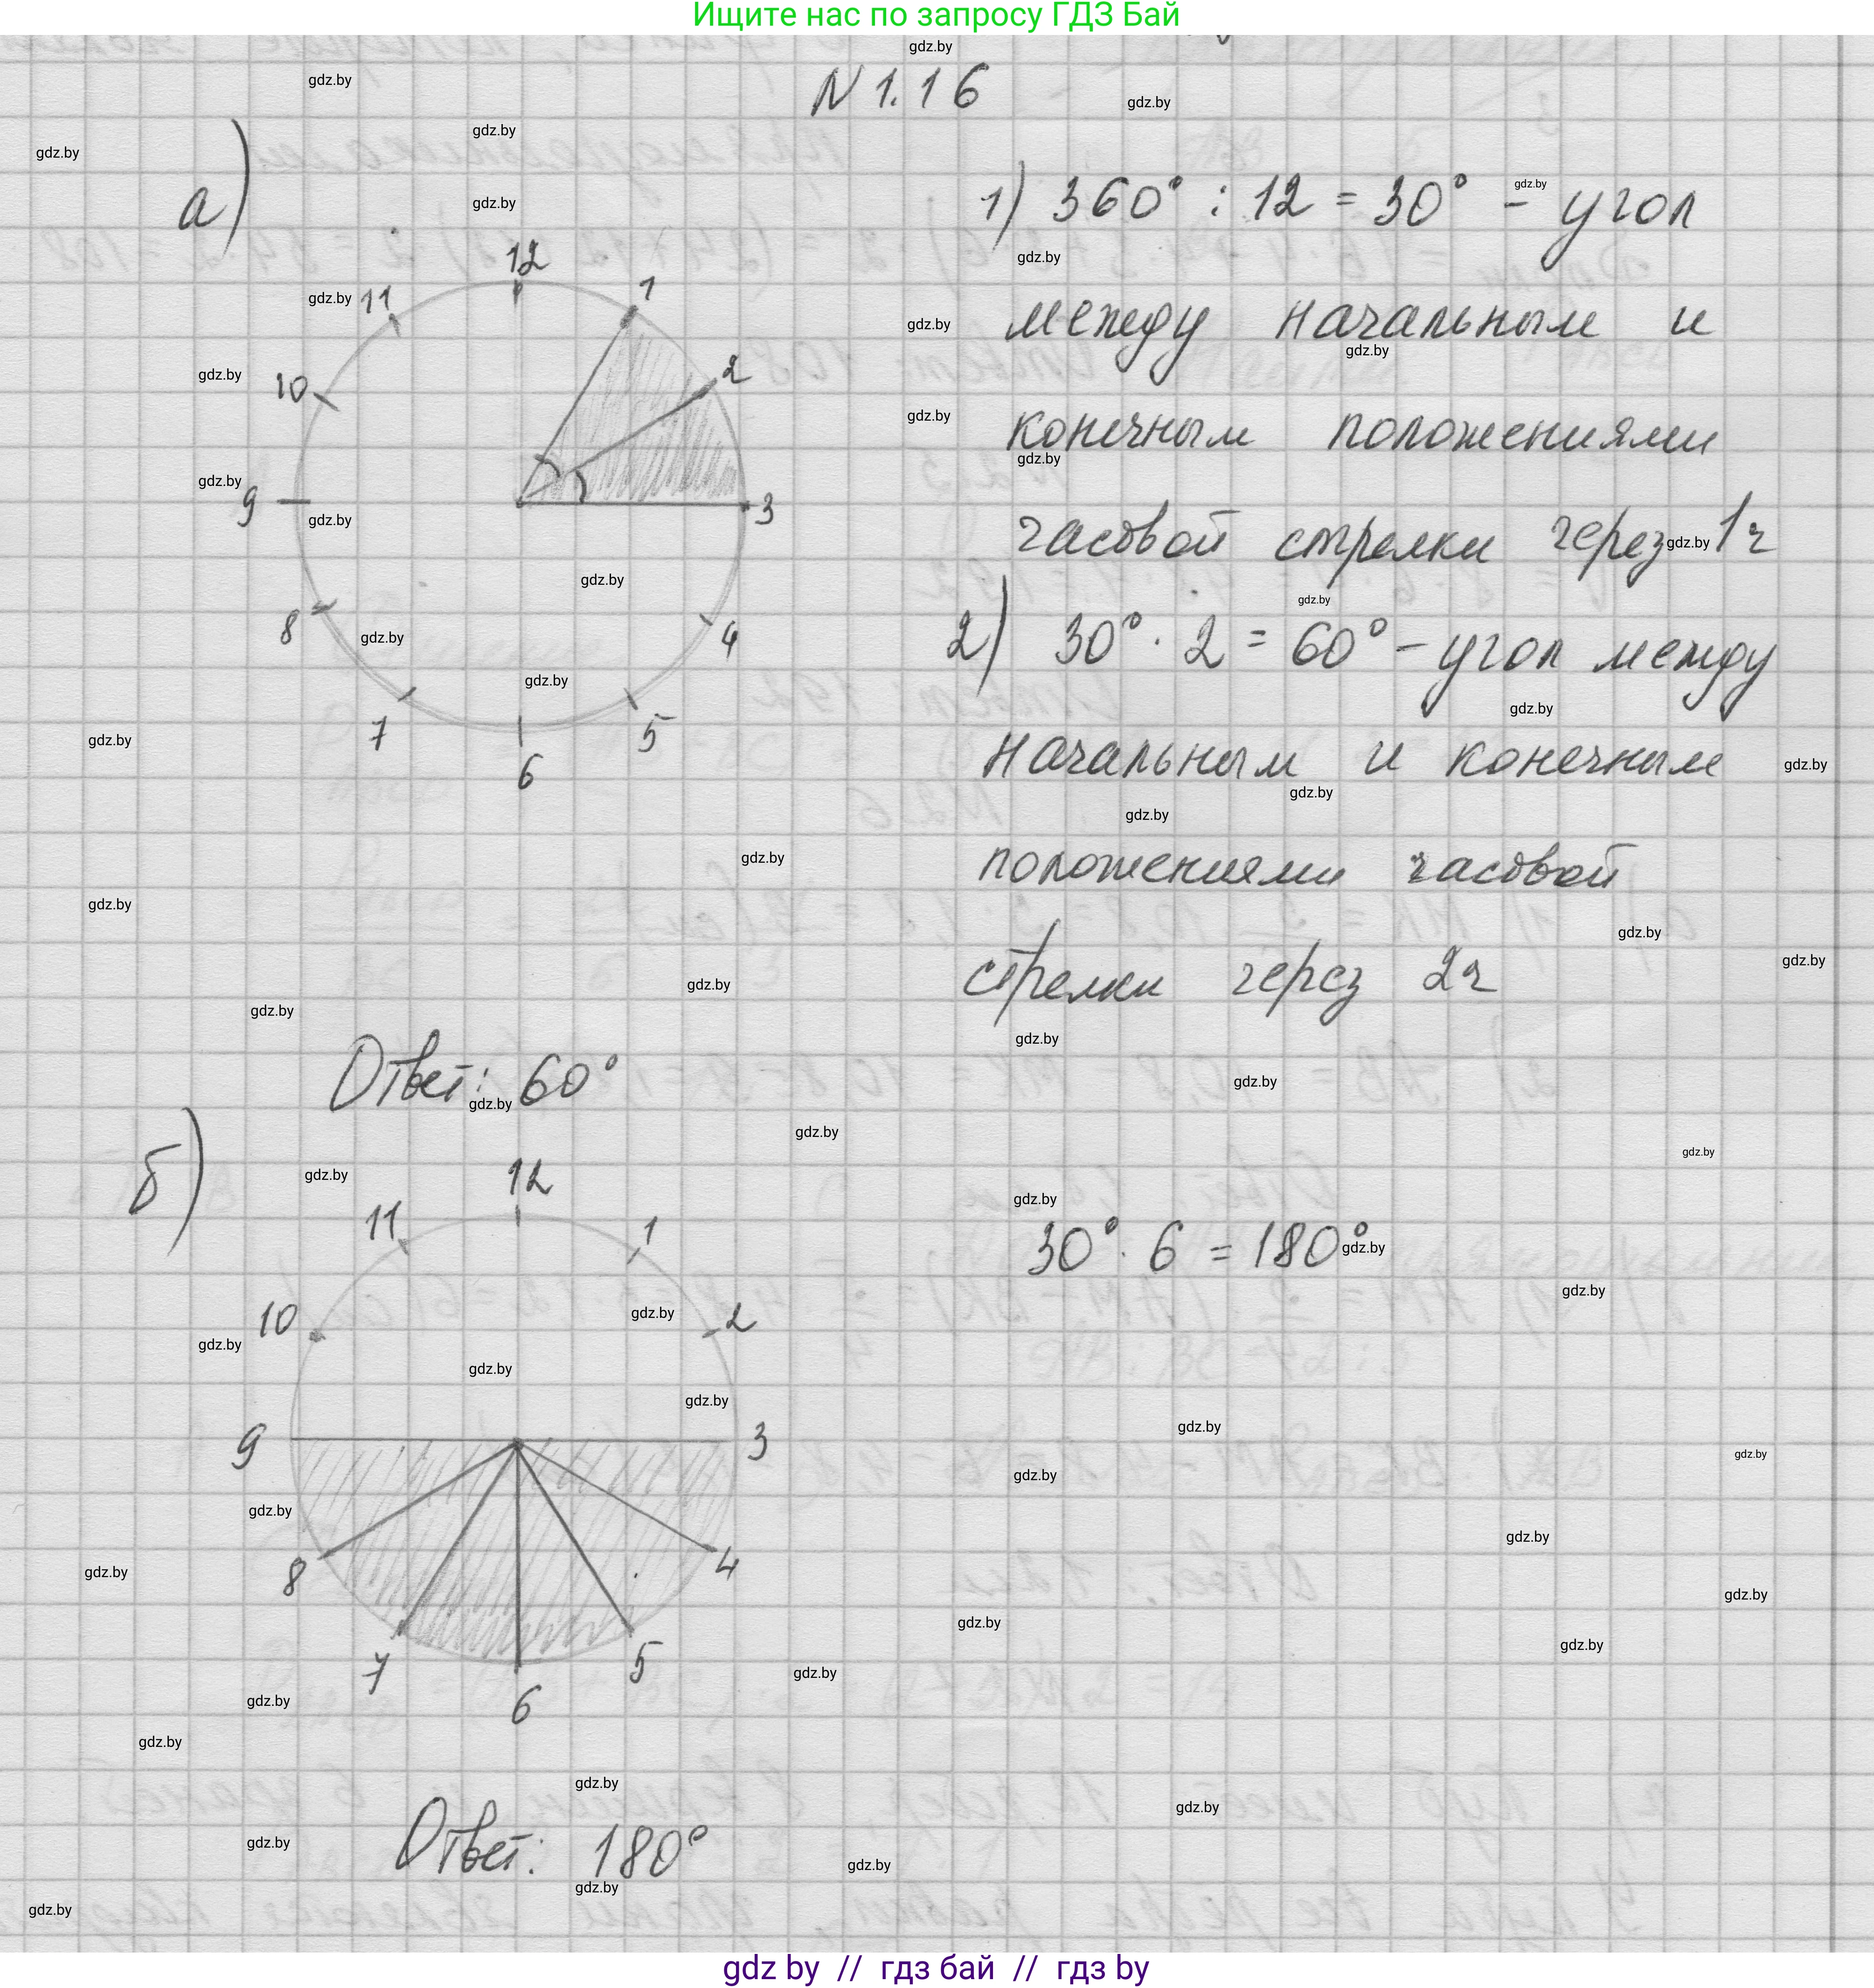 Ищите нас по запросу ГДЗ Бай
N 1.16
а)
1) 360° : 12 = 30° - угол
между начальным и
конечным положениями
часовой стрелки через 1ч
2) 30° · 2 = 60° - угол между
начальным и конечным
положениями часовой
стрелки через 2ч
12
1
2
3
4
5
6
7
8
9
10
11
Ответ: 60°
б)
30° · 6 = 180°
12
1
2
3
4
5
6
7
8
9
10
11
Ответ: 180°
gdz.by
gdz by // гдз бай // гдз by